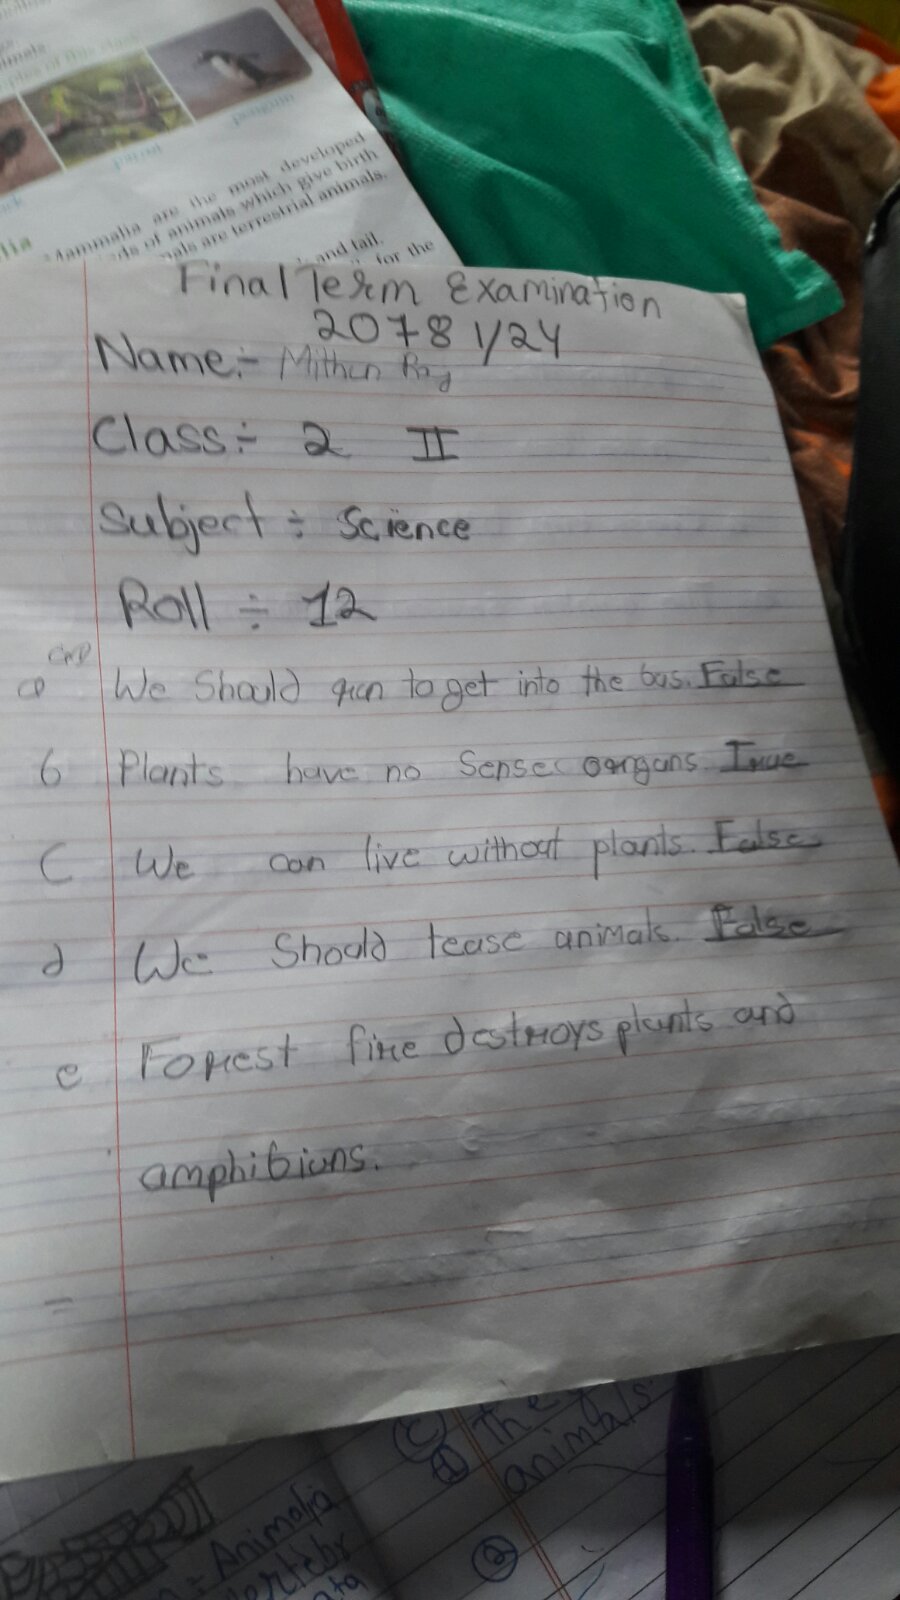 penguin
parrot
Mammalia are the most developed
of animals which give birth
are terrestrial animals.
and tail.
for the
Final Term Examination
2078 1/24
Name:- Mithun Ray
Class ÷ 2 II
Subject ÷ Science
Roll ÷ 12
a We Should run to get into the bus. False
b Plants have no Sense oorgans True
C We can live without plants. False
d We Should tease animals. False
e Forest fire destroys plants and
amphibians.
=
C
animals
Animalia
2